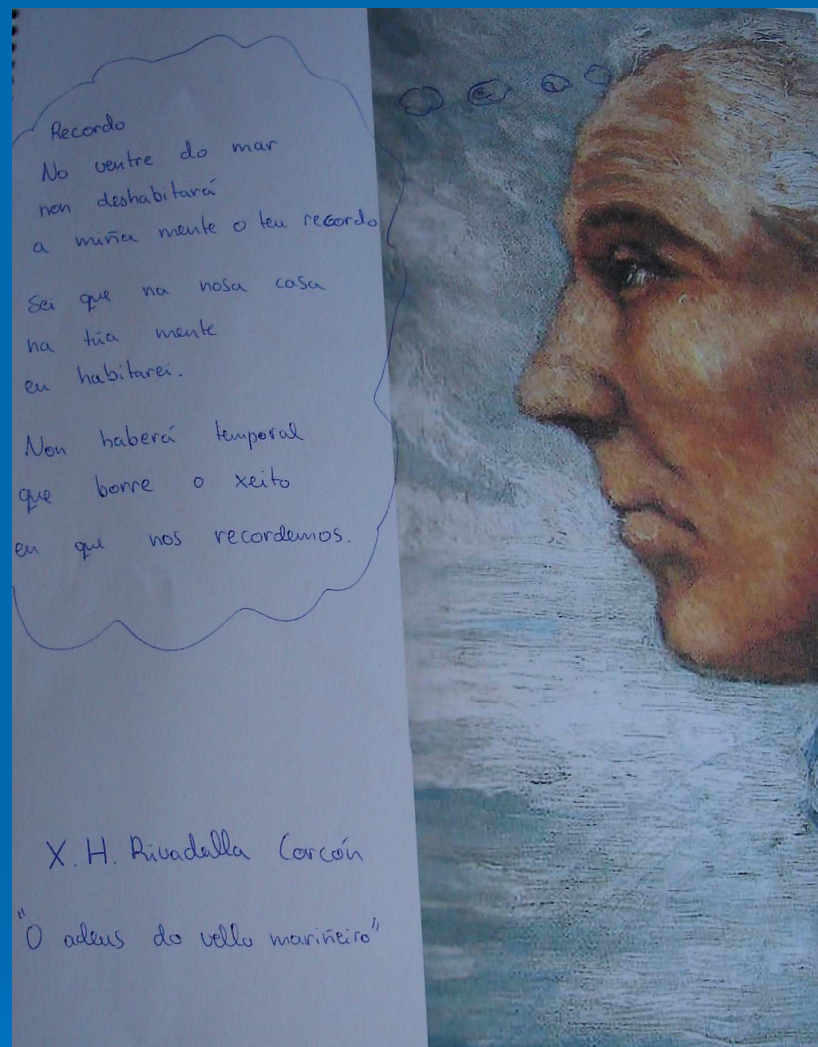 Recordo
No ventre do mar
non deshabitará
a miña mente o teu recordo
Sei que na nosa casa
na túa mente
eu habitarei.
Non haberá temporal
que borre o xeito
en que nos recordemos.
X. H. Rivadalla Corcón
"O adeus do vello mariñeiro"